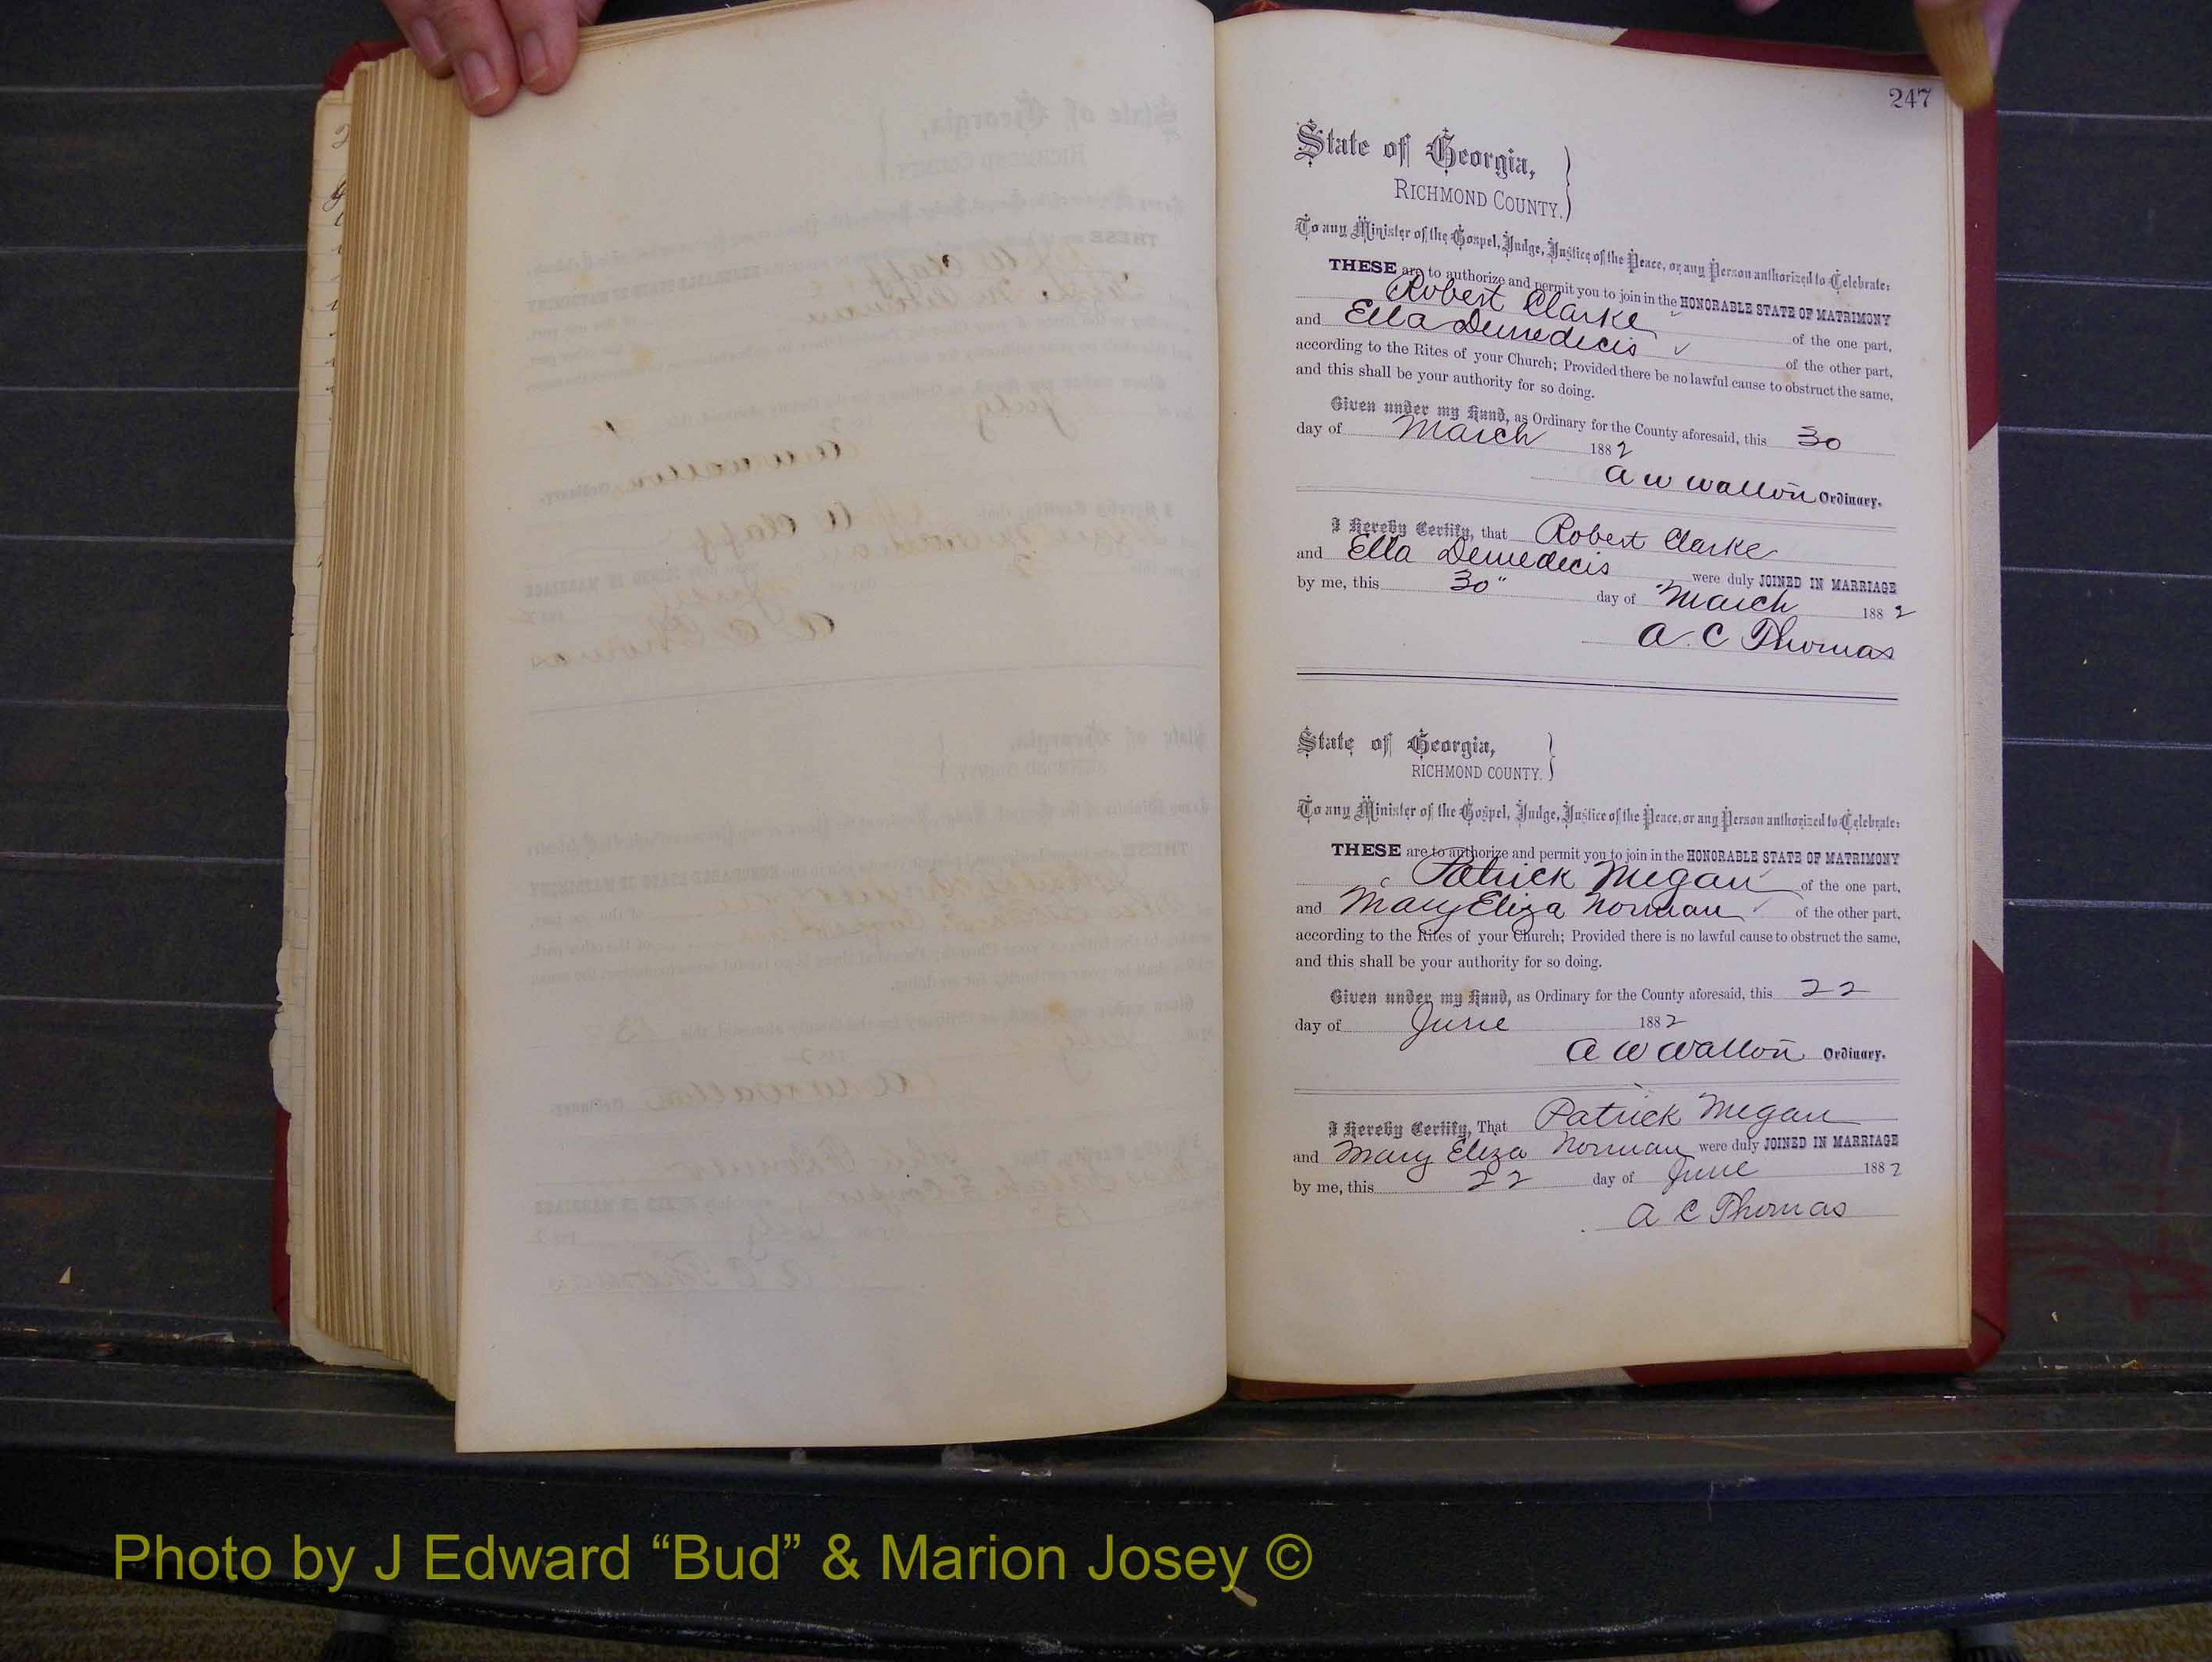 247
State of Georgia,
RICHMOND COUNTY.
To any Minister of the Gospel, Judge, Justice of the Peace, or any Person authorized to Celebrate:
THESE are to authorize and permit you to join in the HONORABLE STATE OF MATRIMONY
Robert Clarke of the one part,
and Ella Demedecis of the other part,
according to the Rites of your Church; Provided there be no lawful cause to obstruct the same,
and this shall be your authority for so doing.
Given under my Hand, as Ordinary for the County aforesaid, this 30
day of March 1882
A W Walton Ordinary.
I Hereby Certify, that Robert Clarke
and Ella Demedecis were duly JOINED IN MARRIAGE
by me, this 30" day of March 1882
A. C Thomas
State of Georgia,
RICHMOND COUNTY.
To any Minister of the Gospel, Judge, Justice of the Peace, or any Person authorized to Celebrate:
THESE are to authorize and permit you to join in the HONORABLE STATE OF MATRIMONY
Patrick Megan of the one part,
and Mary Eliza Norman of the other part,
according to the Rites of your Church; Provided there is no lawful cause to obstruct the same,
and this shall be your authority for so doing.
Given under my Hand, as Ordinary for the County aforesaid, this 22
day of June 1882
A W Walton Ordinary.
I Hereby Certify, That Patrick Megan
and Mary Eliza Norman were duly JOINED IN MARRIAGE
by me, this 22 day of June 1882
A C Thomas
Photo by J Edward “Bud” & Marion Josey ©